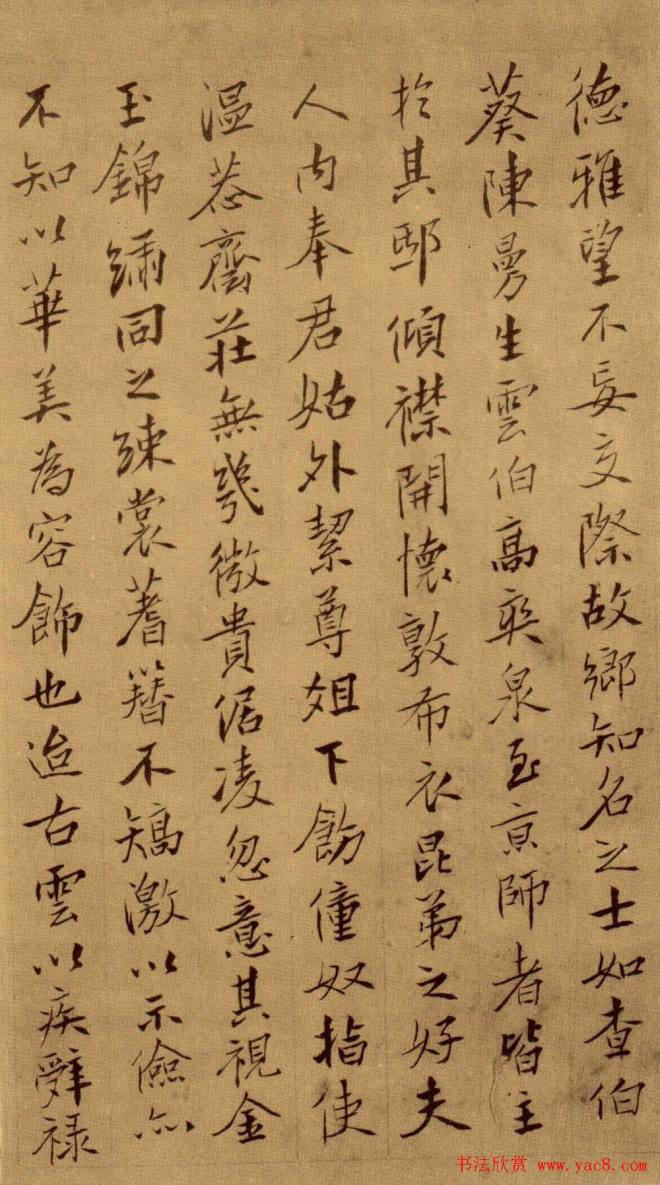 德雅望不妄交際故鄉知名之士如查伯
葵陳曼生雲伯高爽泉至京師者皆主
於其邸傾襟開懷敦布衣昆弟之好夫
人内奉君姑外挈尊姐下飭僮奴指使
温恭齋莊無幾微貴倨凌忽意其視金
玉錦繡同之練裳蓍簪不矯激以示儉亦
不知以華美為容飾也迨古雲以疾辭祿
书法欣赏 www.yac8.com